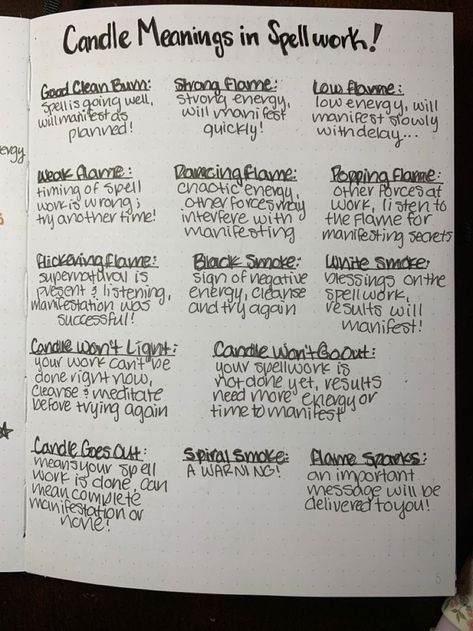 Candle Meanings in Spellwork!
Good Clean Burn:
spell is going well,
will manifest as
planned!
Strong Flame:
strong energy,
will manifest
quickly!
Low Flame:
low energy, will
manifest slowly
with delay...
Weak Flame:
timing of spell
work is wrong;
try another time!
Dancing Flame:
chaotic energy,
other forces may
interfere with
manifesting
Popping Flame:
other forces at
work, listen to
the flame for
manifesting secrets
Flickering Flame:
supernatural is
present & listening,
manifestation was
successful!
Black Smoke:
sign of negative
energy, cleanse
and try again
White Smoke:
blessings on the
spellwork,
results will
manifest!
Candle Won't Light:
your work can't be
done right now,
cleanse & meditate
before trying again
Candle Won't Go Out:
your spellwork is
not done yet, results
need more energy or
time to manifest
Candle Goes Out:
means your spell
work is done, can
mean complete
manifestation or
none!
Spiral Smoke:
A WARNING!
Flame Sparks:
an important
message will be
delivered to you!
5